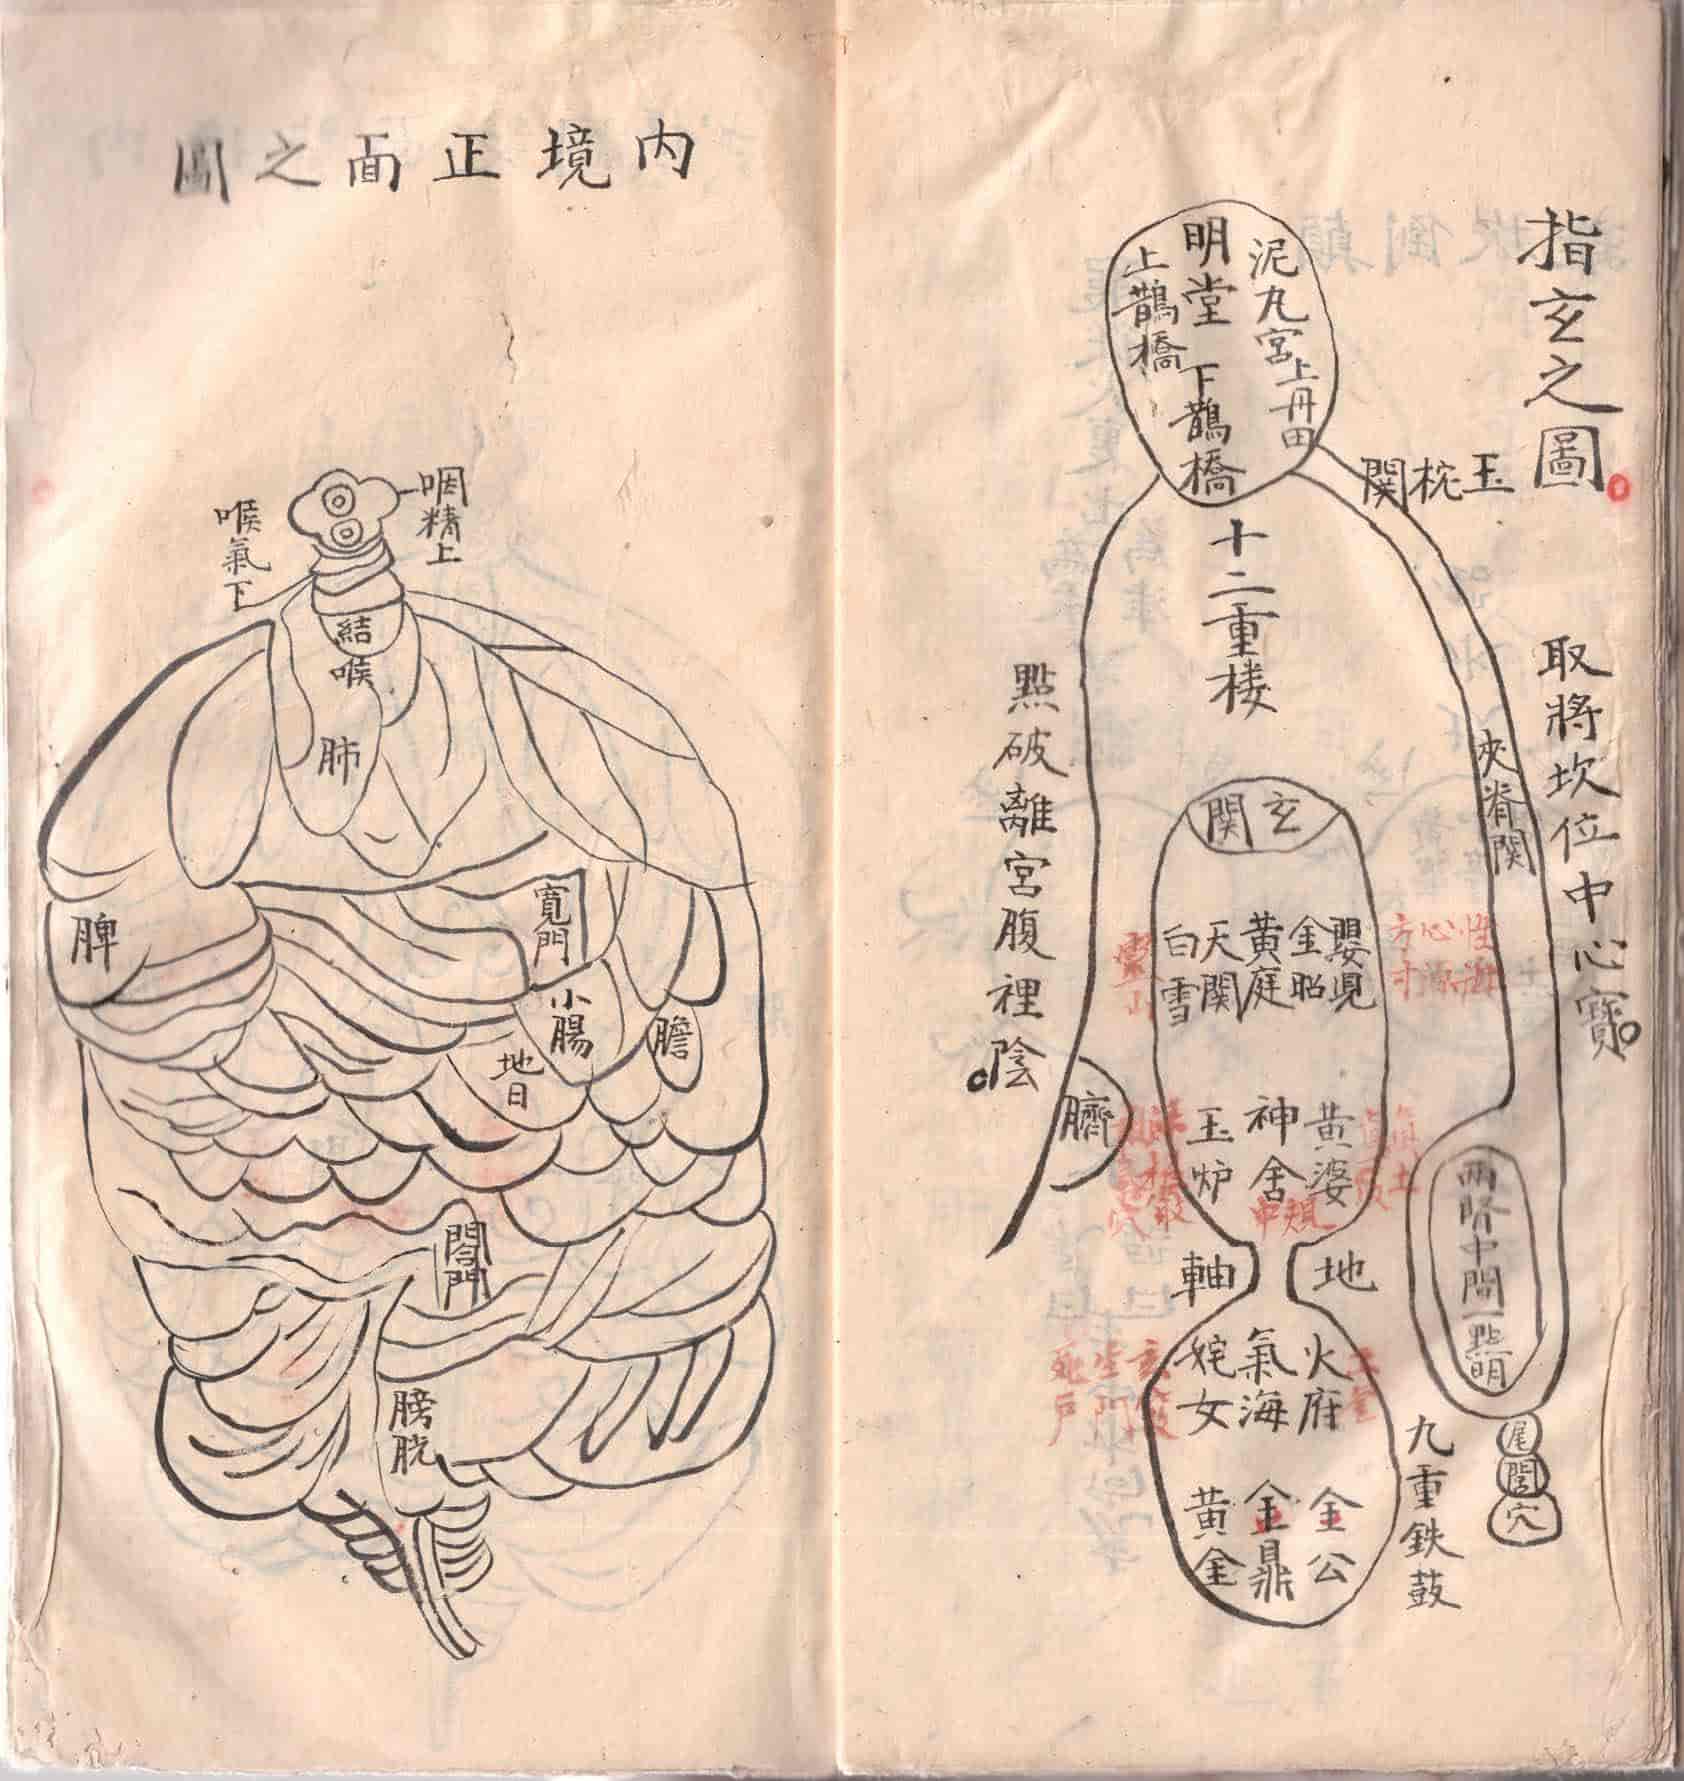 指玄之圖
取將坎位中心寳
玉枕関
泥丸宮上丹田
明堂
下鵲橋
上鵲橋
十二重楼
點破離宮腹裡陰
夾脊関
玄関
嬰児
金
黄庭
天関
白雪
性海
心源
方寸
靈山
臍
黄婆
神舍
玉炉
真土
規中
地軸
火府
氣海
姹女
生門
死戶
金公
金鼎
黄金
兩腎中間一點明
九重鉄鼓
尾閭穴
内境正面之圖
咽精上
喉氣下
結喉
肺
脾
寛門
小腸
膽
地日
闊門
膀胱